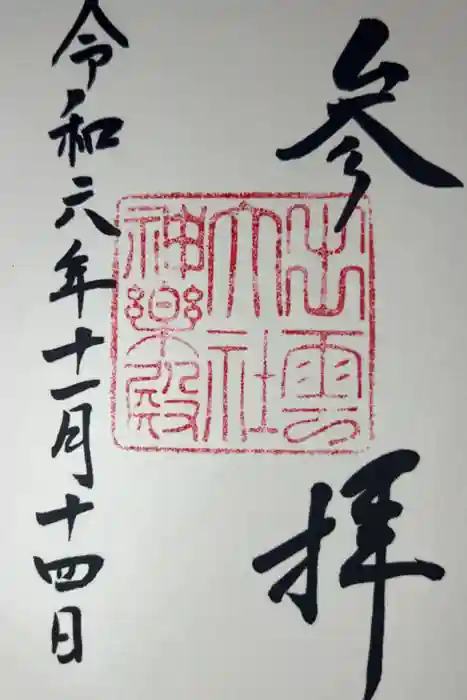 参拝
出雲
大社
神楽殿
令和六年十一月十四日